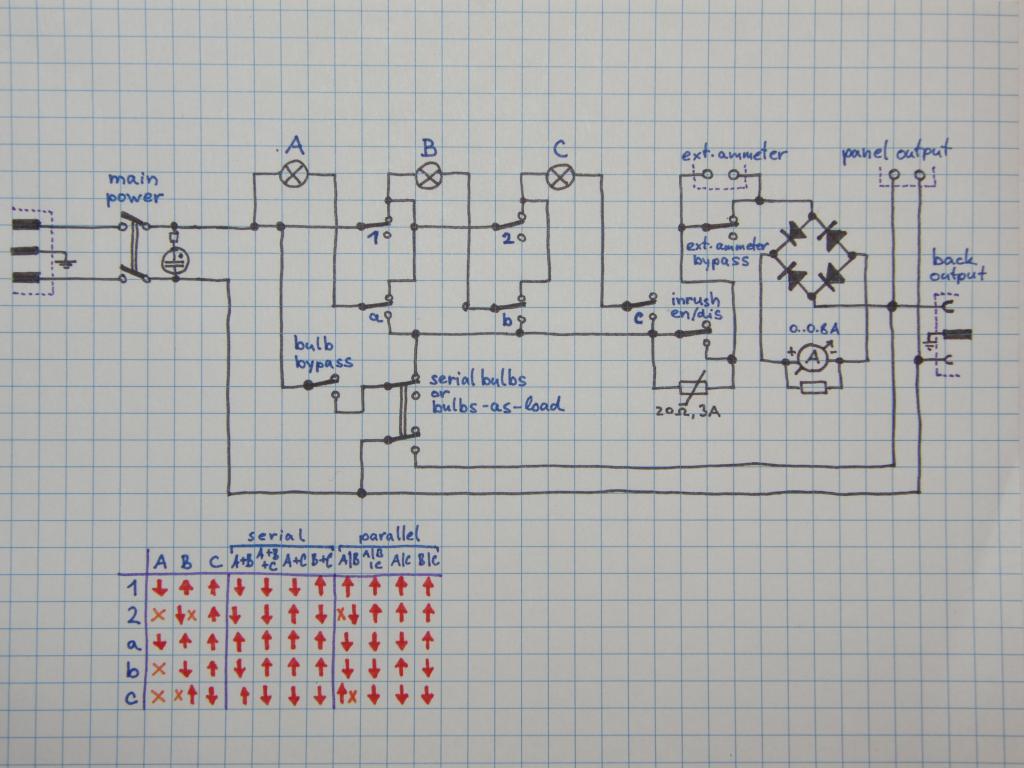 A B C
ext. ammeter
panel output
main
power
1 2
ext. ammeter
bypass
back
output
a b c
inrush
en/dis
0..0.6A
+ A -
bulb
bypass
serial bulbs
or
bulbs-as-load
20Ω, 3A
serial parallel
A B C A+B A+B+C A+C B+C A|B A|B|C A|C B|C
1 ↓ ↑ ↑ ↓ ↓ ↓ ↑ ↑ ↑ ↑ ↑
2 x ↓x ↑ ↓ ↓ ↑ ↓ x↓ ↑ ↑ ↑
a ↓ ↑ ↑ ↑ ↑ ↑ ↑ ↓ ↓ ↓ ↑
b x ↓ ↑ ↓ ↑ ↑ ↑ ↓ ↓ ↑ ↓
c x x↑ ↓ ↑ ↓ ↓ ↓ ↑x ↓ ↓ ↓